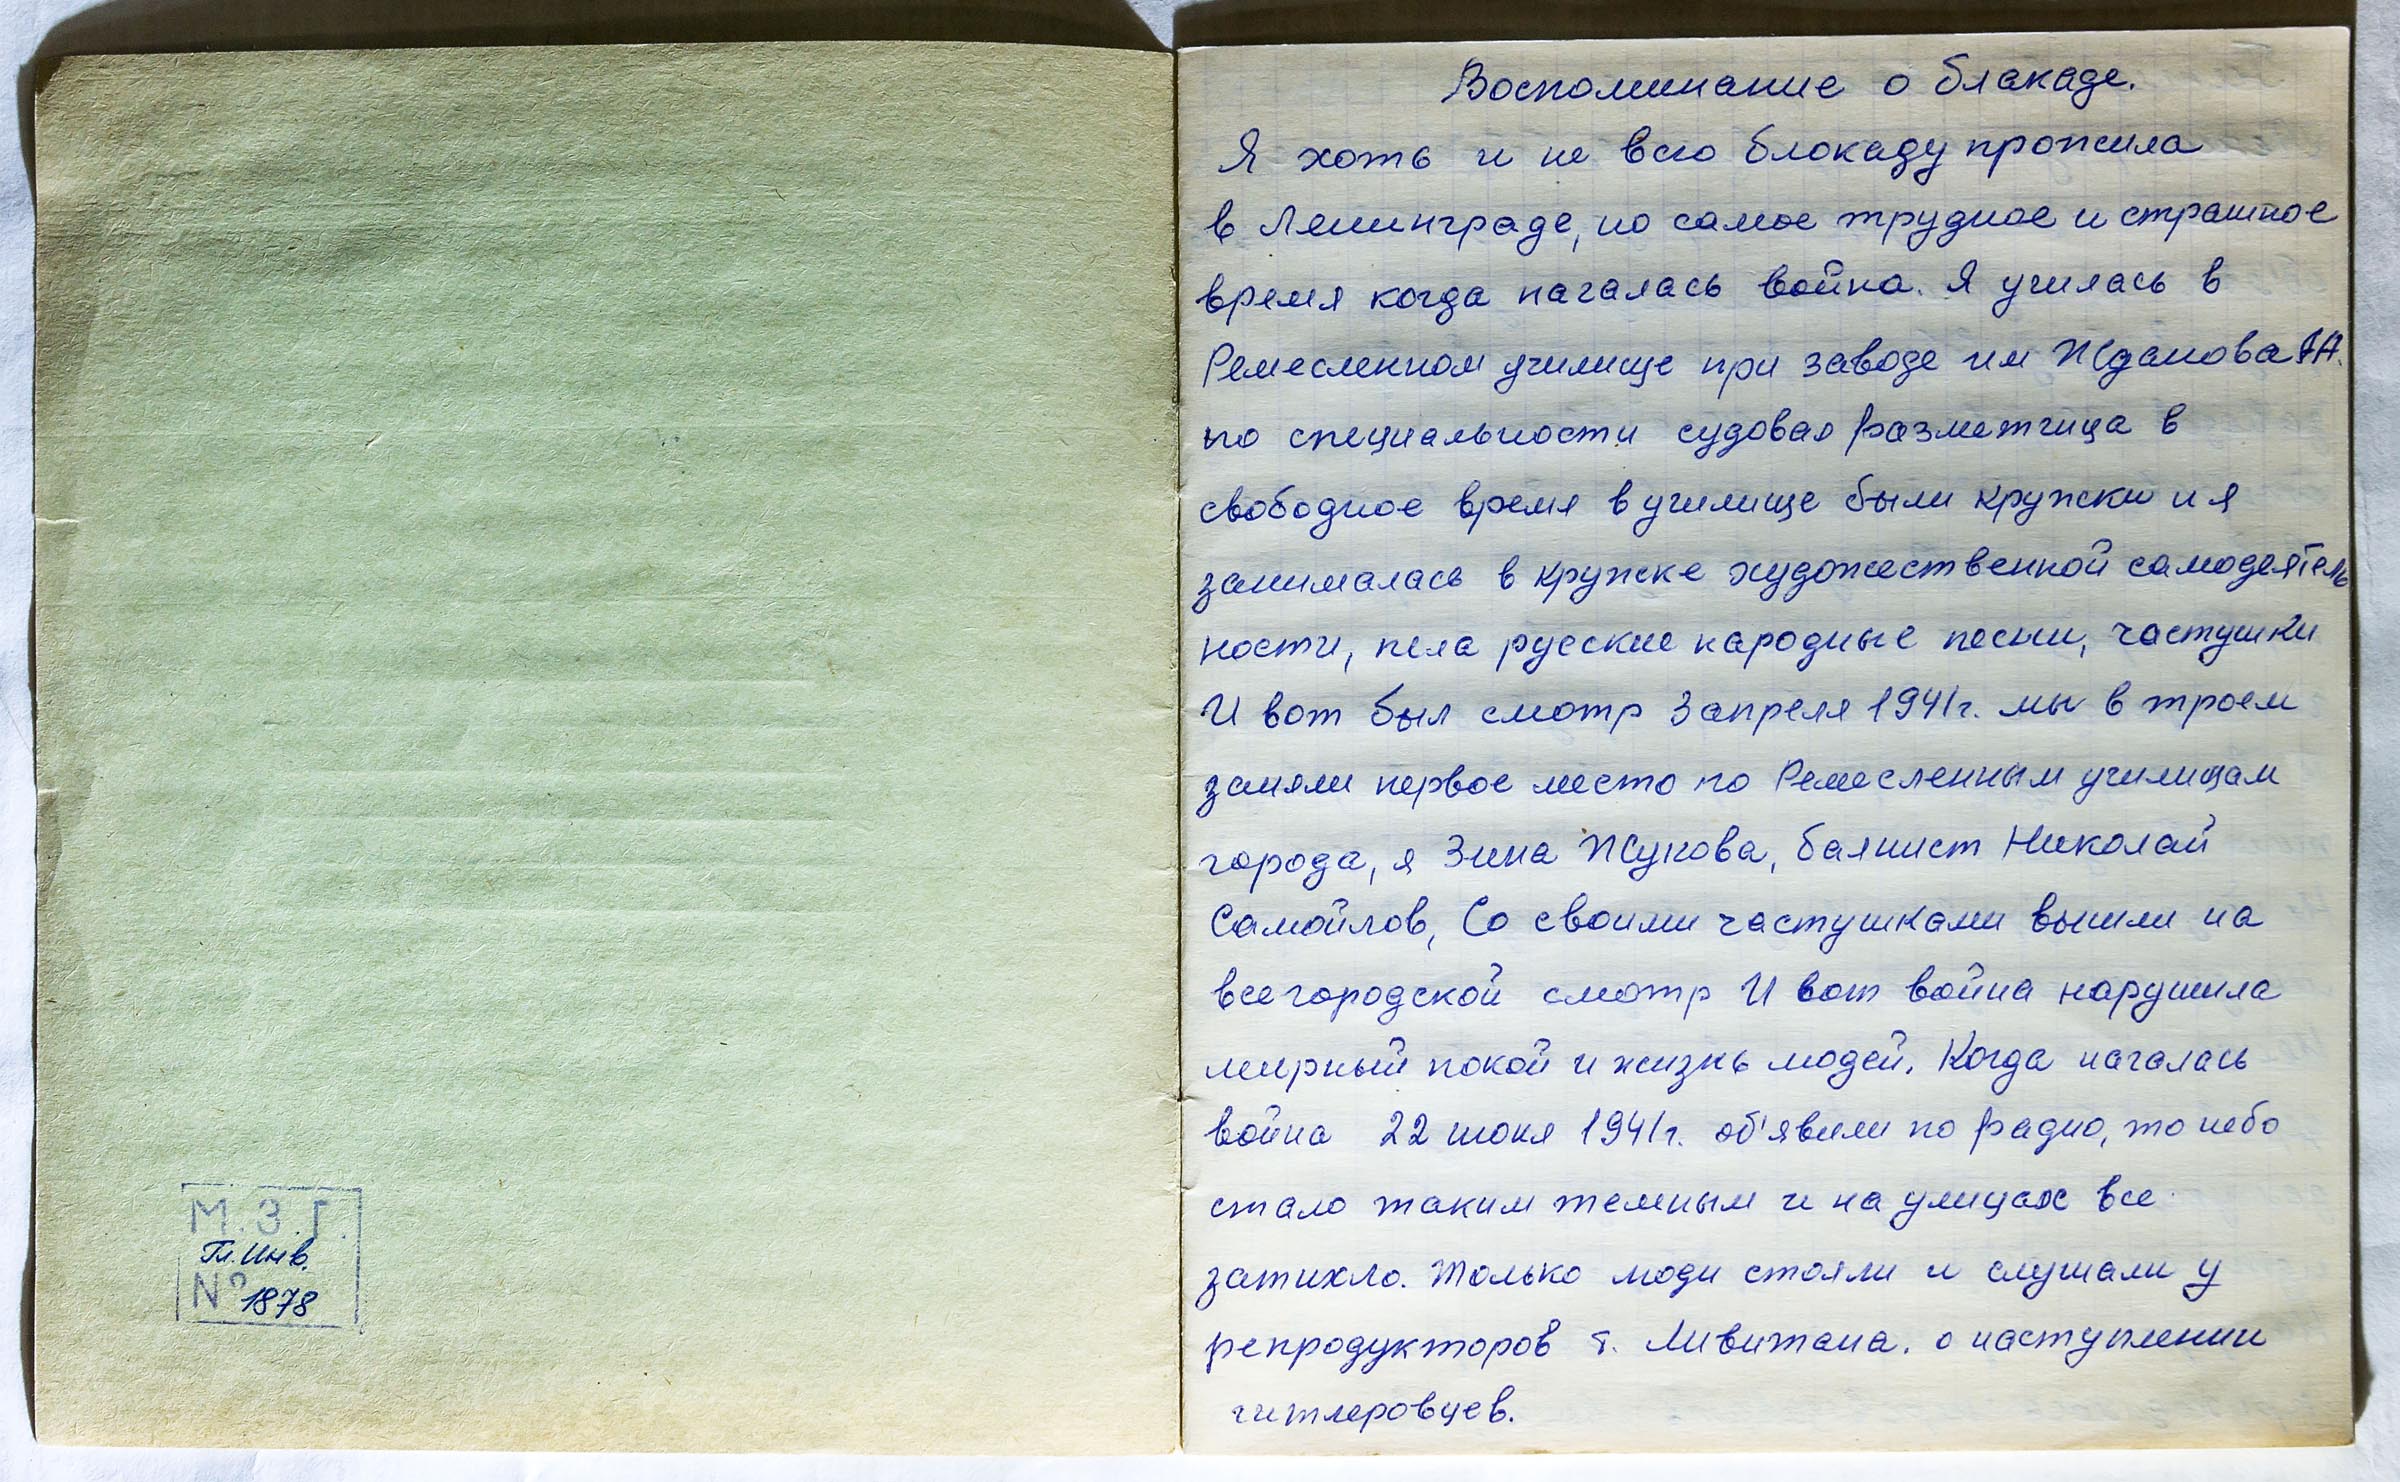 М.З.Г.
Гл. Инв.
№ 1878
Воспоминание о блакаде.
Я хоть и не всю блокаду прожила
в Ленинграде, но самое трудное и страшное
время когда началась война. Я училась в
Ремесленном училище при заводе им Жданова АА.
по специальности судовая разметчица в
свободное время в училище были кружки и я
занималась в кружке художественной самодеятель
ности, пела русские народные песни, частушки
И вот был смотр 3 апреля 1941г. мы в троем
заняли первое место по Ремесленным училищам
города, я Зина Жукова, баянист Николай
Самойлов, Со своими частушками вышли на
всегородской смотр И вот война нарушила
мирный покой и жизнь людей. Когда началась
война 22 июня 1941г. об'явили по радио, то небо
стало таким темным и на улицах все
затихло. Только люди стояли и слушали у
репродукторов т. Ливитана. о наступлении
гитлеровцев.